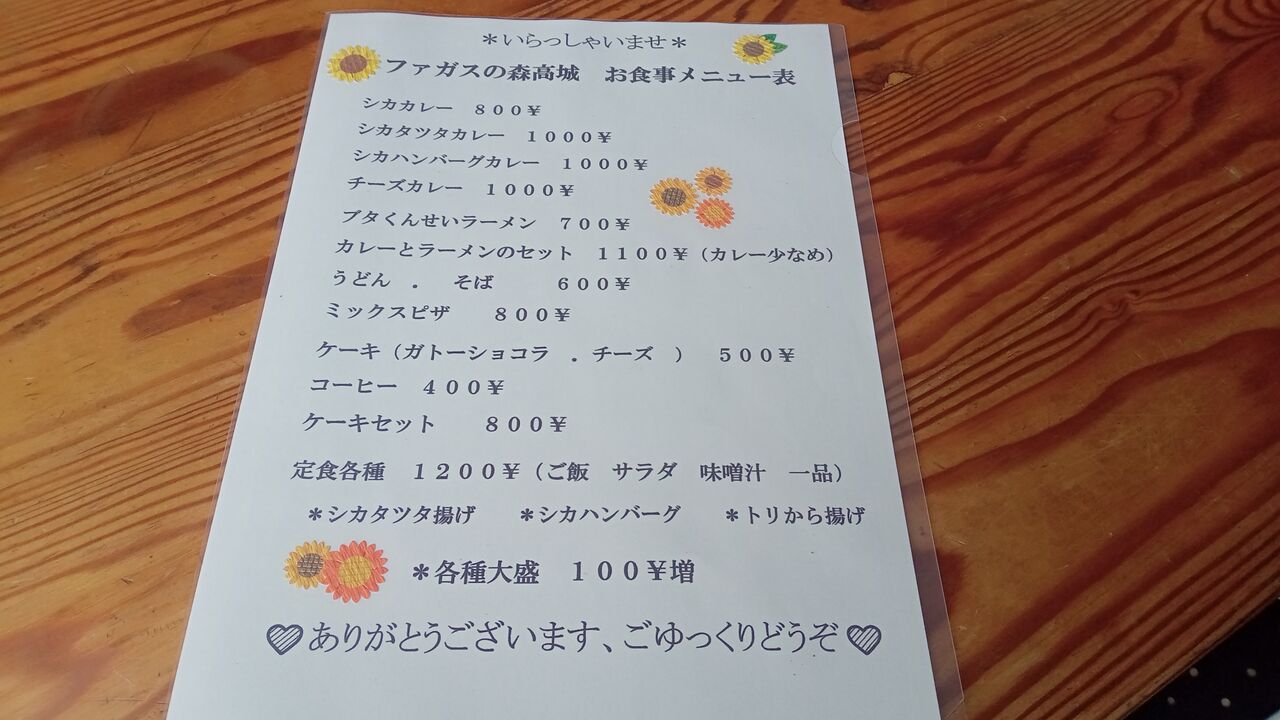 ＊いらっしゃいませ＊
ファガスの森高城　お食事メニュー表
シカカレー　８００￥
シカタツタカレー　１０００￥
シカハンバーグカレー　１０００￥
チーズカレー　１０００￥
ブタくんせいラーメン　７００￥
カレーとラーメンのセット　１１００￥（カレー少なめ）
うどん　．　そば　　　６００￥
ミックスピザ　　８００￥
ケーキ（ガトーショコラ　．チーズ　）　５００￥
コーヒー　４００￥
ケーキセット　　８００￥
定食各種　１２００￥（ご飯　サラダ　味噌汁　一品）
＊シカタツタ揚げ　　＊シカハンバーグ　　＊トリから揚げ
＊各種大盛　１００￥増
ありがとうございます、ごゆっくりどうぞ